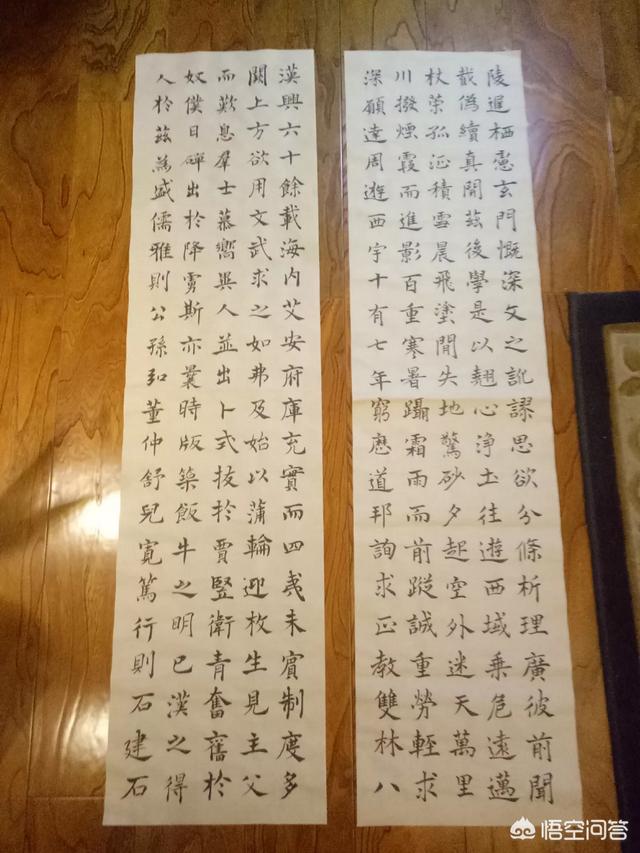 陵遲栖慮玄門慨深文之訛謬思欲分條析理廣彼前聞
截偽續真開茲後學是以翹心淨土往遊西域乘危遠邁
杖策孤征積雪晨飛塗閒失地驚砂夕起空外迷天萬里
川撥煙霞而進影百重寒暑躡霜雨而前蹤誠重勞輕求
深願達周遊西宇十有七年窮歷道邦詢求正教雙林八
漢興六十餘載海內艾安府庫充實而四夷未賓制度多
闕上方欲用文武求之如弗及始以蒲輪迎枚生見主父
而歎息羣士慕嚮異人並出卜式拔於賈豎衛青奮舊於
奴僕日磾出於降虜斯亦曩時版築飯牛之明已漢之得
人於茲為盛儒雅則公孫弘董仲舒兒寬篤行則石建石
悟空问答